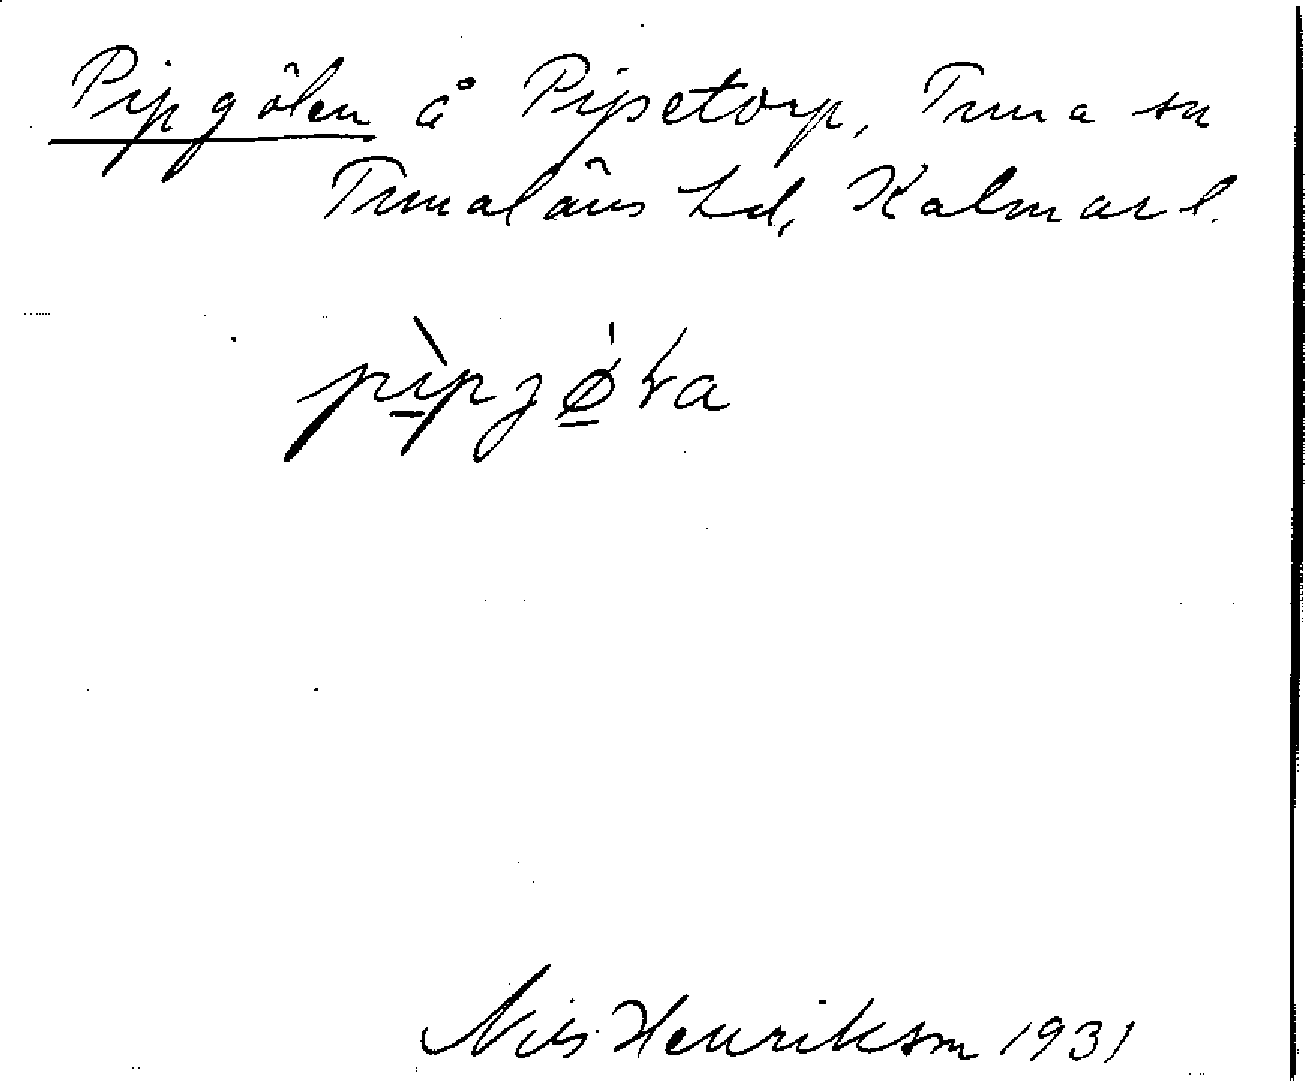 Pipgölen å Pipetorp, Tuna sn
Tunaläns hd, Kalmar l.
pìpgø̀ʟa
Nils Henrikson 1931